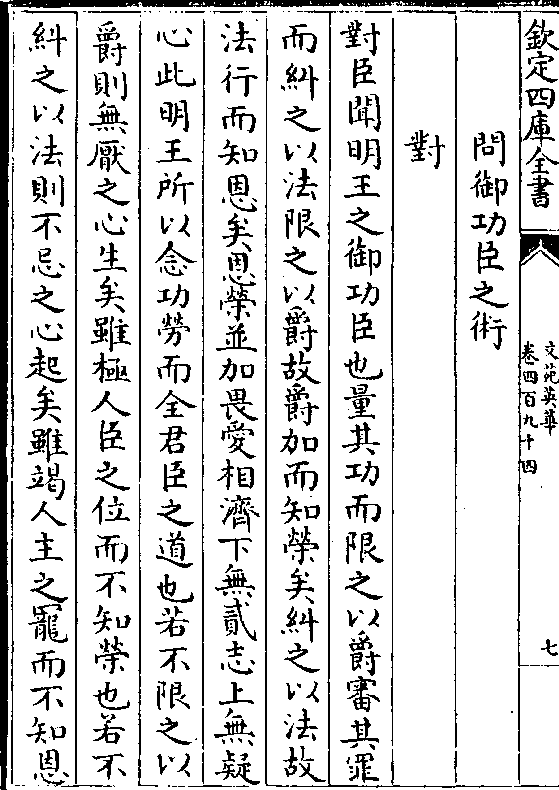 欽定四庫全書
文苑英華
卷四百九十四
七
問御功臣之術
對
對臣聞明王之御功臣也量其功而限之以爵審其罪
而糾之以法限之以爵故爵加而知榮矣糾之以法故
法行而知恩矣恩榮並加畏愛相濟下無貳志上無疑
心此明王所以念功勞而全君臣之道也若不限之以
爵則無厭之心生矣雖極人臣之位而不知榮也若不
糾之以法則不忌之心起矣雖竭人主之寵而不知恩